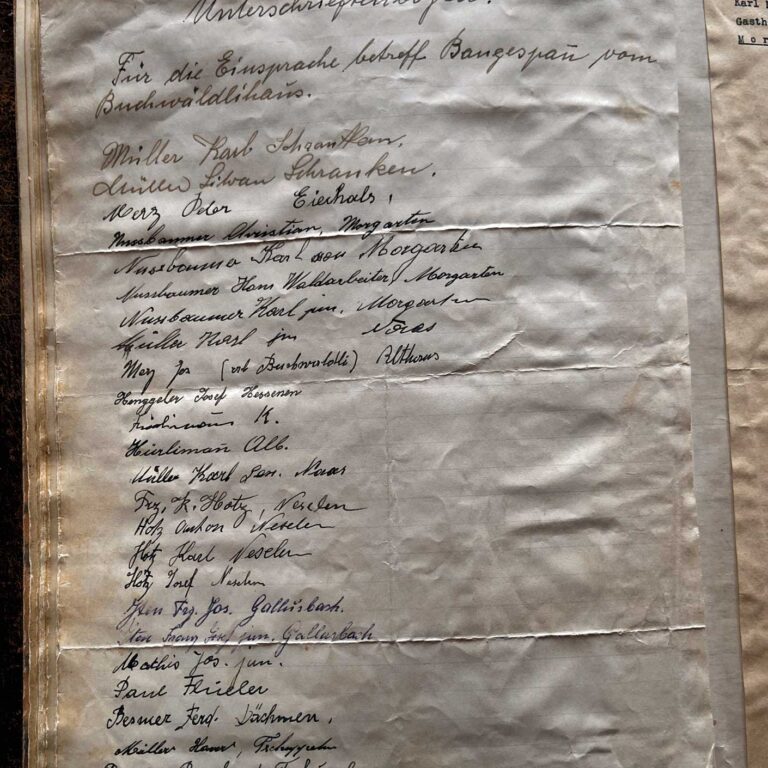 Unterschriftenbogen.
Für die Einsprache betreff Baugespañ vom
Buchwäldlihaus.
Müller Karl Schranken.
Müller Silvan Schranken.
Merz Eierhals,
Nussbaumer Christian, Morgarten
Nussbaumer Karl sen Morgarten
Nussbaumer Hans Waldarbeiter, Morgarten
Nussbaumer Karl jun. Morgarten
Müller Karl jn
Merz Jos
Henggeler Josef
K.
Hürlimañ Alb.
Müller Karl Sen. Naas
Frz. K. Hotz, Neselen
Hotz Anton Neselen
Hotz Karl Neselen
Hotz Josef Neselen
Iten Frz. Jos. Gallusbach.
Iten Franz Josef jun. Gallusbach
Mathis Jos. jun.
Paul Flüeler
Besmer Ferd.
Müller Hans,
Karl
Gasth
Mor